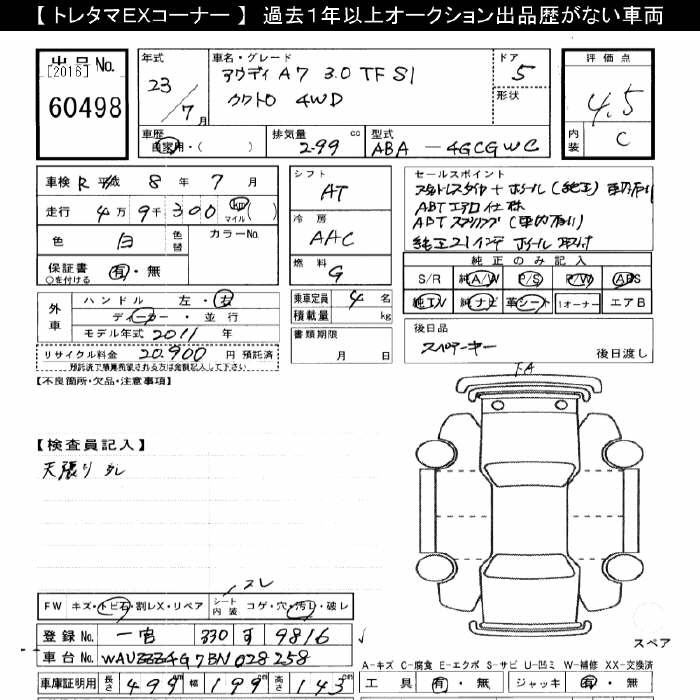 【 トレタマEXコーナー 】 過去1年以上オークション出品歴がない車両
出品No.
[2016]
60498
年式
23
7月
車名・グレード
アウディ A7 3.0 TFSI
クワトロ 4WD
ドア
5
形状
評価点
4.5
内装
C
車歴
自家用・( )
排気量
2.99 cc
型式
ABA - 4GCGWC
車検 R 平成 8年 7月
走行 4万9千300 km マイル ( )
色 白 色替
カラーNo.
保証書 有・無
○を付ける
シフト
AT
冷房
AAC
燃料
G
セールスポイント
スタットレスタイヤ + ホイール (純正) 車内有り
ABT エアロ 仕様
ABT スプリング (車内有り)
純正21インチ ホイール 取付
純正のみ記入
S/R 純A/W P/S P/W ABS
純TV 純ナビ 革シート 1オーナー エアB
外車
ハンドル 左・右
ディーラー・並行
モデル年式 2011年
リサイクル料金 20,900 円 預託済
預託済で積算希望される方は金額記入して下さい
乗車定員 4 名
積載量 kg
書類期限
月 日
後日品
スペアーキー
後日渡し
【不良箇所・欠品・注意事項】
FA
【検査員記入】
天張り ヌレ
スレ
FW キズ・トビ石・割レX・リペア シート内装 コゲ・穴・汚レ・破レ
登録No. 一宮 330 す 9816
車台No. WAUZZZ4G7BN028258
車庫証明用 長さ 499 cm 幅 199 cm 高さ 143 cm
スペア
A-キズ C-腐食 E-エクボ S-サビ U-凹ミ W-補修 XX-交換済
工具 有・無 ジャッキ 有・無